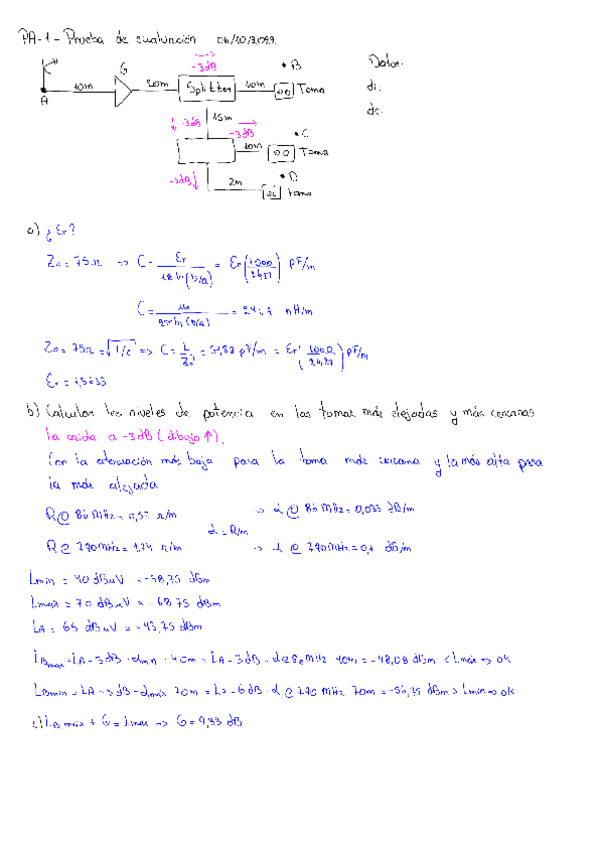 PA-1 - Prueba de evaluación 06/10/2022
-3dB
B
Datos:
G
10m
20m
Splitter
10m
Toma
di:
A
de:
-3dB
15m
-3dB
C
10m
Toma
-3dB
D
2m
Toma
a) ¿Er?
Zo = 75Ω → C = Er / 18 ln(b/a) = Er (1000/24,27) pF/m
nH/m
Zo = 75Ω = √L/C => C = L/Zo² = pF/m = Er (1000/24,27) pF/m
Er =
b) Calcular los niveles de potencia en las tomas más alejadas y más cercanas
la caída a -3dB (dibujo ↑).
Con la atenuación más baja para la toma más cercana y la más alta para
la más alejada
R @ 86 MHz = 0,57 Ω/m → α @ 86 MHz = 0,033 dB/m
α = R/m
R @ 790MHz = 1,74 Ω/m → α @ 790MHz = 0,1 dB/m
Lmin = 40 dBuV = -68,75 dBm
Lmax = 70 dBuV = -68,75 dBm
LA = 65 dBuV = -43,75 dBm
LBmax = LA - 3dB - αmin · 40m = LA - 3dB - α @ 86 MHz 40m = -48,08 dBm < Lmax => ok
LBmin = LA - 3dB - αmax 70m = LA - 6dB - α @ 790 MHz 70m = -56,75 dBm > Lmin => ok
c) LBmax + G = Lmax => G = 9,33 dB